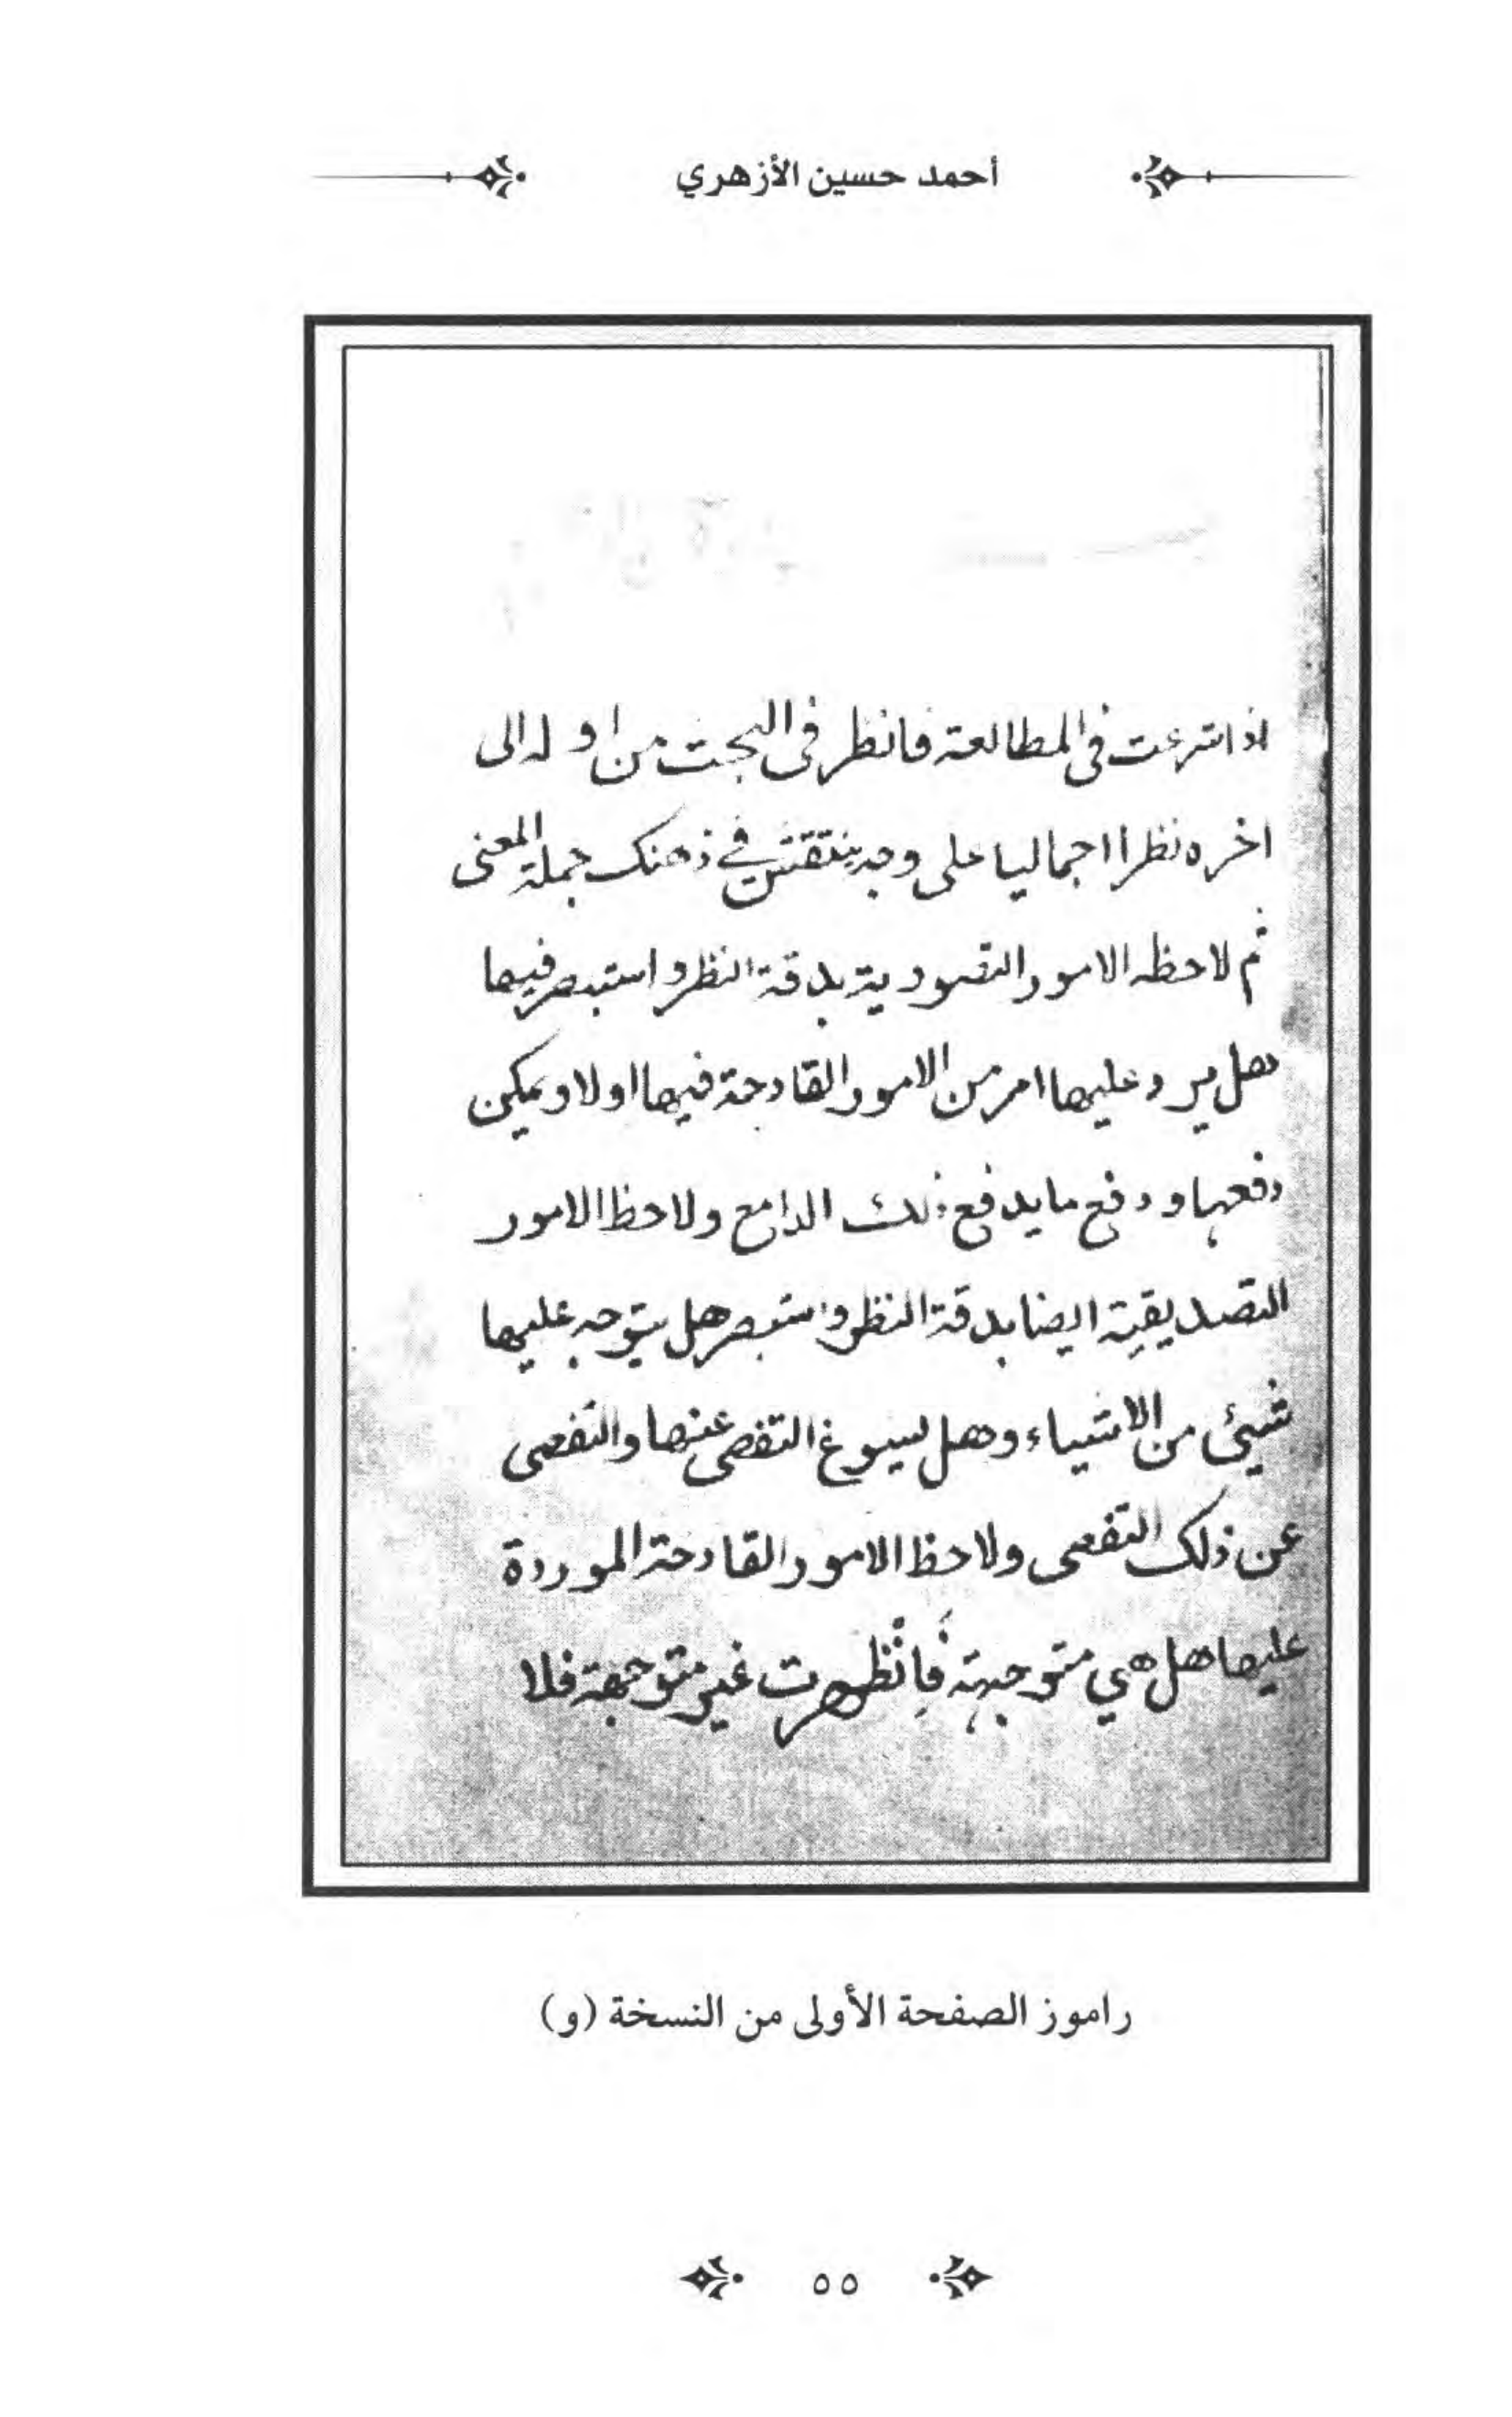 أحمد حسين الأزهري
اذا شرعت فى المطالعة فانظر فى البحث من اوله الى
اخره نظرا اجماليا على وجه ينتقش في ذهنك جملة المعنى
ثم لاحظه الامور التصورية بدقة النظر واستبصر فيها
هل يرد عليها امر من الامور القادحة فيها اولا ويمكن
دفعها ودفع ما يدفع ذلك الدافع ولاحظ الامور
التصديقية ايضا بدقة النظر واستبصر هل يتوجه عليها
شيئ من الاشياء وهل يسوغ التفصى عنها والتفصى
عن ذلك التفصى ولاحظ الامور القادحة الموردة
عليها هل هي متوجهة فان ظهرت غير متوجهة فلا
راموز الصفحة الأولى من النسخة (و)
٥٥